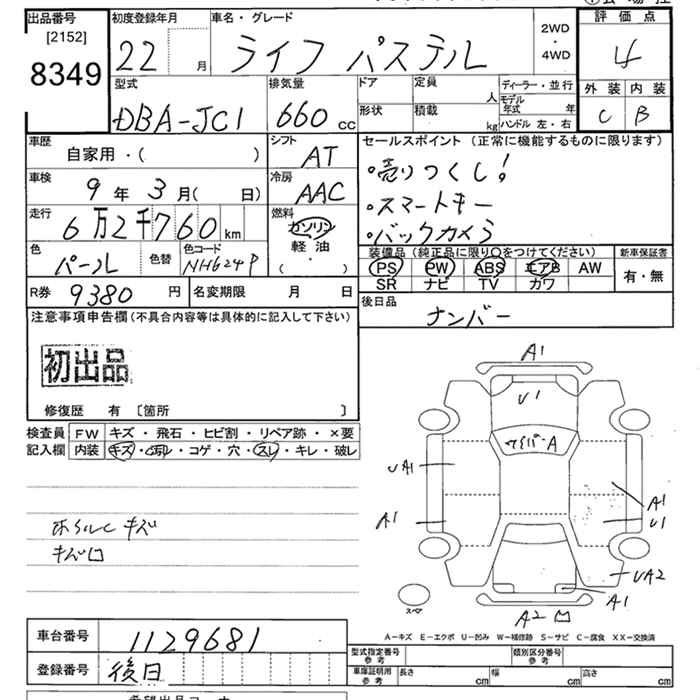 出品番号
[2152]
8349
初度登録年月
22 月
車名・グレード
ライフ パステル
2WD
・
4WD
評価点
4
外装 内装
C B
型式
DBA-JC1
排気量
660 CC
ドア
定員
人
形状
積載
kg
ディーラー・並行
モデル年式 年
ハンドル 左・右
車歴
自家用・( )
シフト
AT
セールスポイント (正常に機能するものに限ります)
・売りつくし!
・スマートキー
・バックカメラ
車検
9 年 3 月 ( 日)
冷房
AAC
走行
6万2千760 km
燃料
ガソリン
軽油
( ・ )
色
パール
色替
色コード
NH624P
装備品 (純正品に限り〇をつけてください)
PS PW ABS エアB AW
SR ナビ TV カワ
新車保証書
有・無
R券 9380 円
名変期限 月 日
後日品
ナンバー
注意事項申告欄(不具合内容等は具体的に記入して下さい)
初出品
修復歴 有 [箇所 ]
検査員記入欄
FW キズ・飛石・ヒビ割・リペア跡・×要
内装 キズ・汚れ・コゲ・穴・スレ・キレ・破レ
キズ
A1
U1
ワイパーA
UA1
A1
A1
U1
UA2
A1
スペア
A2
A-キズ E-エクボ U-凹み W-補修跡 S-サビ C-腐食 XX-交換済
車台番号 1129681
登録番号 後日
型式指定番号 参考
類別区分番号 参考
車庫証明用 参考
長さ cm 幅 cm 高さ cm